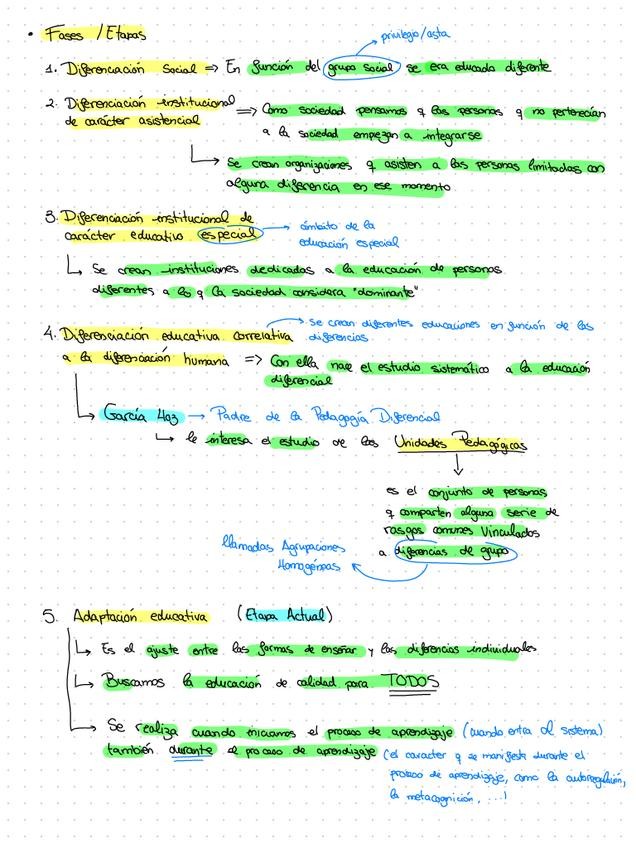 • Fases / Etapas
privilegio/casta
1. Diferenciación Social => En función del grupo social se era educado diferente
2. Diferenciación institucional de carácter asistencial => Como sociedad pensamos q las personas q no pertenecían
a la sociedad empezan a integrarse
Se crean organizaciones q asisten a las personas limitadas con
alguna diferencia en ese momento
3. Diferenciación institucional de
carácter educativo especial → ámbito de la
educación especial
Se crean instituciones dedicadas a la educación de personas
diferentes a lo q la sociedad considera "dominante"
se crean diferentes educaciones en función de las
diferencias
4. Diferenciación educativa correlativa
a la diferenciación humana => Con ella nace el estudio sistemático a la educación
diferencial
García Hoz → Padre de la Pedagogía Diferencial
le interesa el estudio de las Unidades Pedagógicas
es el conjunto de personas
q comparten alguna serie de
rasgos comunes vinculados
a diferencias de grupo
llamadas Agrupaciones
Homogéneas
5. Adaptación educativa (Etapa Actual)
Es el ajuste entre las formas de enseñar y las diferencias individuales
Buscamos la educación de calidad para TODOS
Se realiza cuando iniciamos el proceso de aprendizaje (cuando entra al sistema)
también durante el proceso de aprendizaje (el caracter q se manifieste durante el
proceso de aprendizaje, como la autoregulación,
la metacognición, ...)